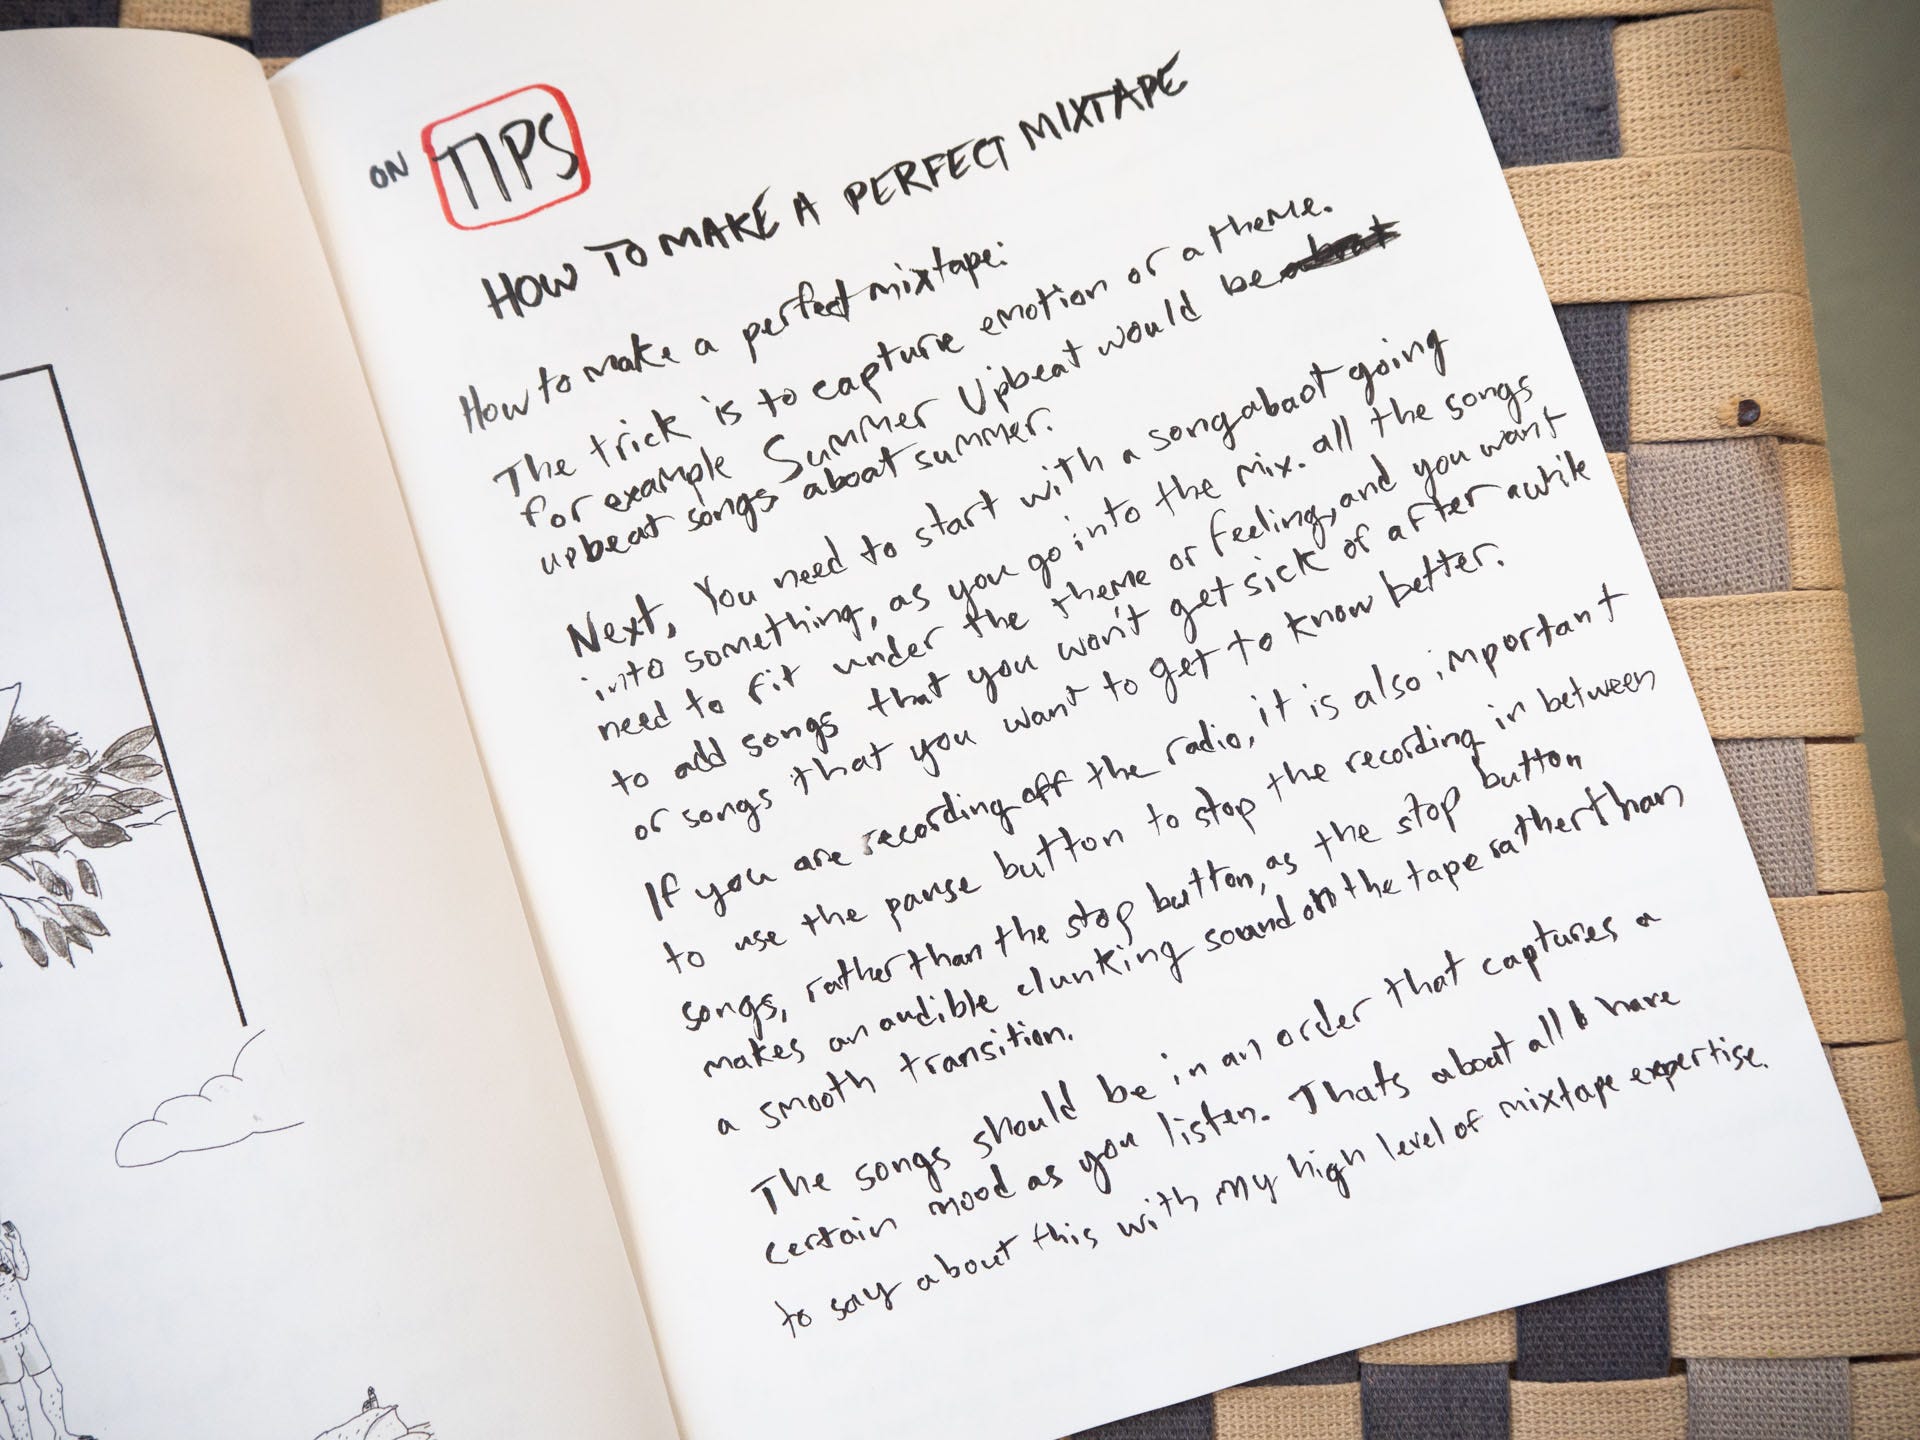 ON TIPS
HOW TO MAKE A PERFECT MIXTAPE
How to make a perfect mixtape:
The trick is to capture emotion or a theme.
for example Summer Upbeat would be
upbeat songs about summer.
Next, You need to start with a song about going
into something, as you go into the mix. all the songs
need to fit under the theme or feeling, and you want
to add songs that you won't get sick of after awhile
or songs that you want to get to know better.
If you are recording off the radio, it is also important
to use the pause button to stop the recording in between
songs, rather than the stop button, as the stop button
makes an audible clunking sound on the tape rather than
a smooth transition.
The songs should be in an order that captures a
certain mood as you listen. Thats about all I have
to say about this with my high level of mixtape expertise.